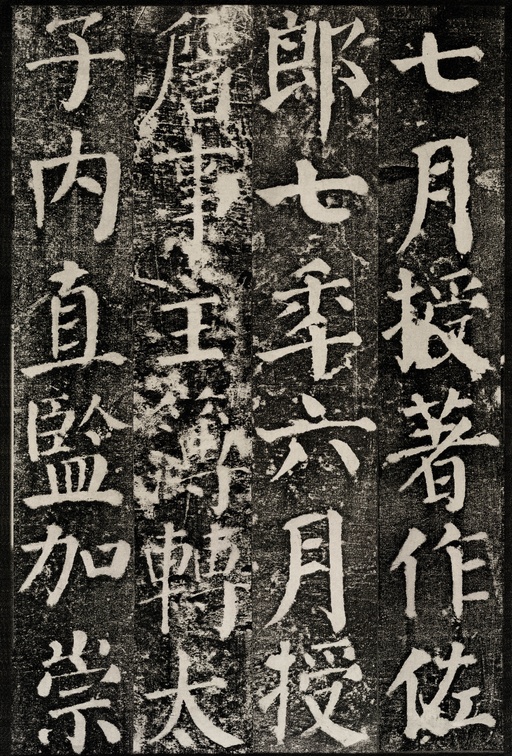 七月授著作佐
郎七秊六月授
詹事主簿轉太
子内直監加崇